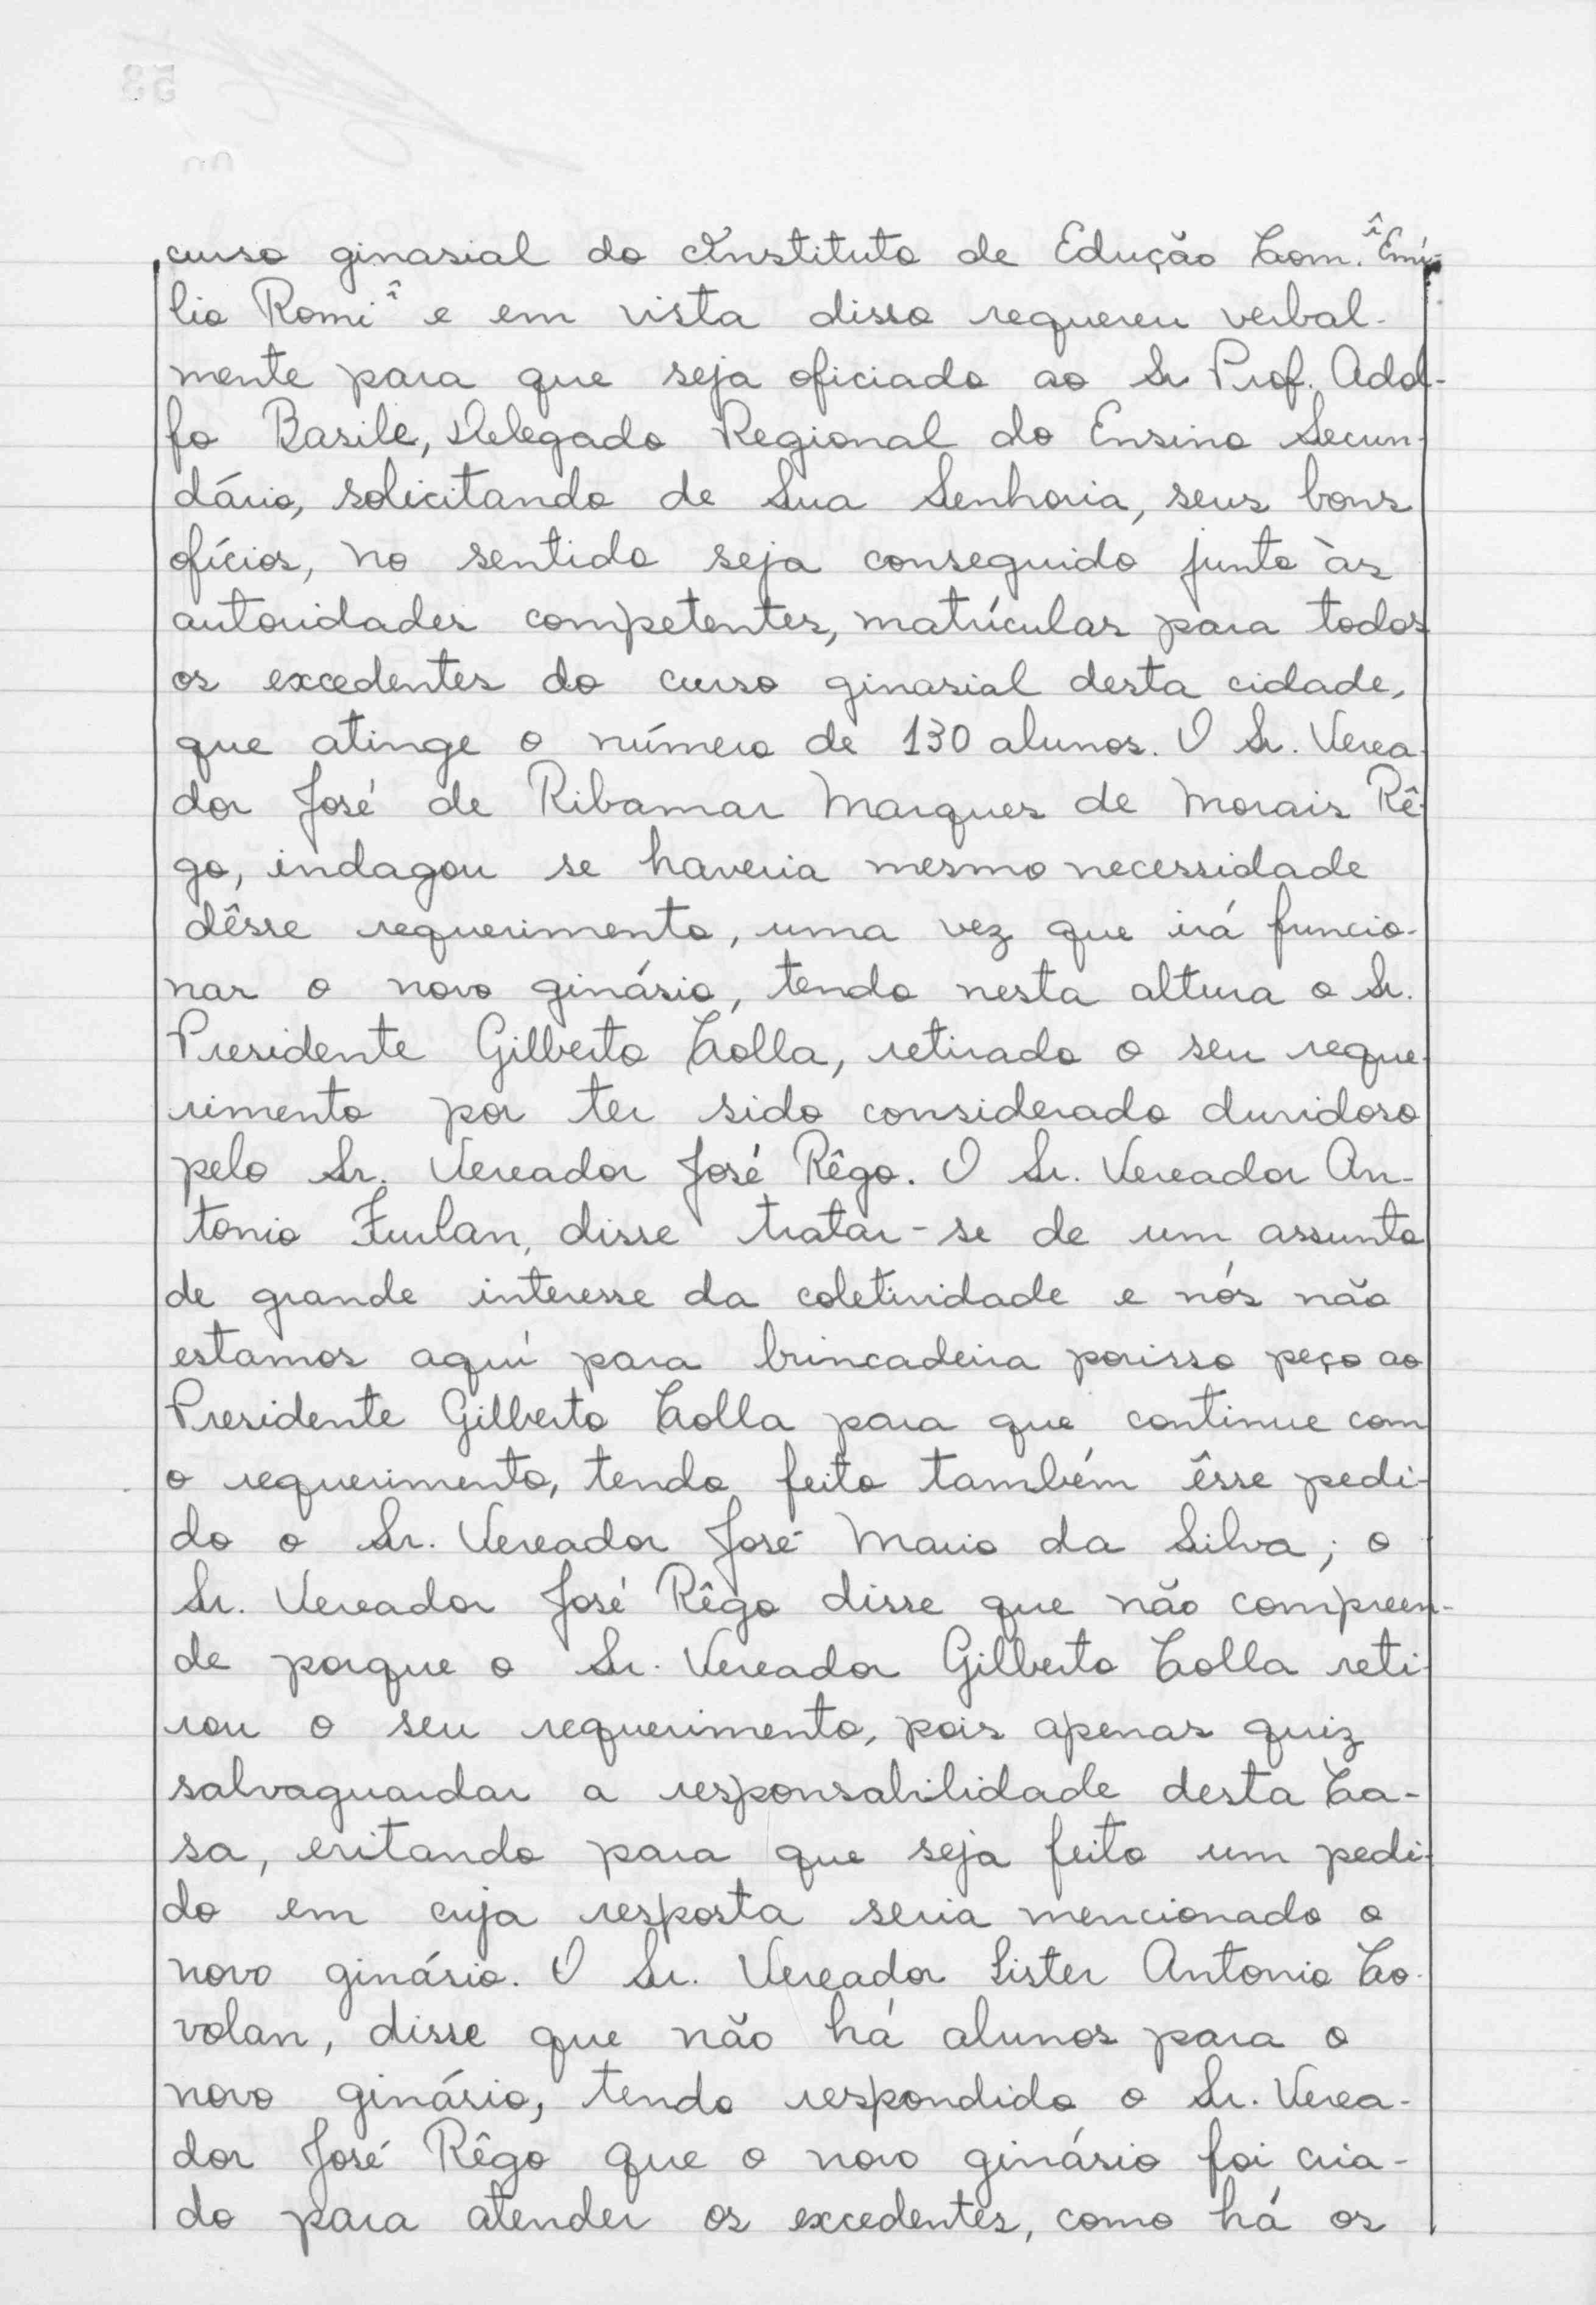 curso ginasial do Instituto de Edução Com. "Emí-
lio Romi" e em vista disso requereu verbal-
mente para que seja oficiado ao Sr Prof. Adol-
fo Basile, Delegado Regional do Ensino Secun-
dário, solicitando de Sua Senhoria, seus bons
ofícios, no sentido seja conseguido junto às
autoridades competentes, matrículas para todos
os excedentes do curso ginasial desta cidade,
que atinge o número de 130 alunos. O Sr. Verea-
dor José de Ribamar Marques de Morais Rê-
go, indagou se haveria mesmo necessidade
dêsse requerimento, uma vez que irá funcio-
nar o novo ginásio, tendo nesta altura o Sr.
Presidente Gilberto Colla, retirado o seu reque-
rimento por ter sido considerado duvidoso
pelo Sr. Vereador José Rêgo. O Sr. Vereador An-
tonio Furlan, disse tratar-se de um assunto
de grande interesse da coletividade e nós não
estamos aquí para brincadeira porisso peço ao
Presidente Gilberto Colla para que continue com
o requerimento, tendo feito também êsse pedi-
do o Sr. Vereador José Mario da Silva; o
Sr. Vereador José Rêgo disse que não compreen-
de porque o Sr. Vereador Gilberto Colla reti-
rou o seu requerimento, pois apenas quiz
salvaguardar a responsabilidade desta Ca-
sa, evitando para que seja feito um pedi-
do em cuja resposta seria mencionado o
novo ginásio. O Sr. Vereador Lister Antonio Co-
volan, disse que não há alunos para o
novo ginásio, tendo respondido o Sr. Verea-
dor José Rêgo que o novo ginásio foi cria-
do para atender os excedentes, como há os